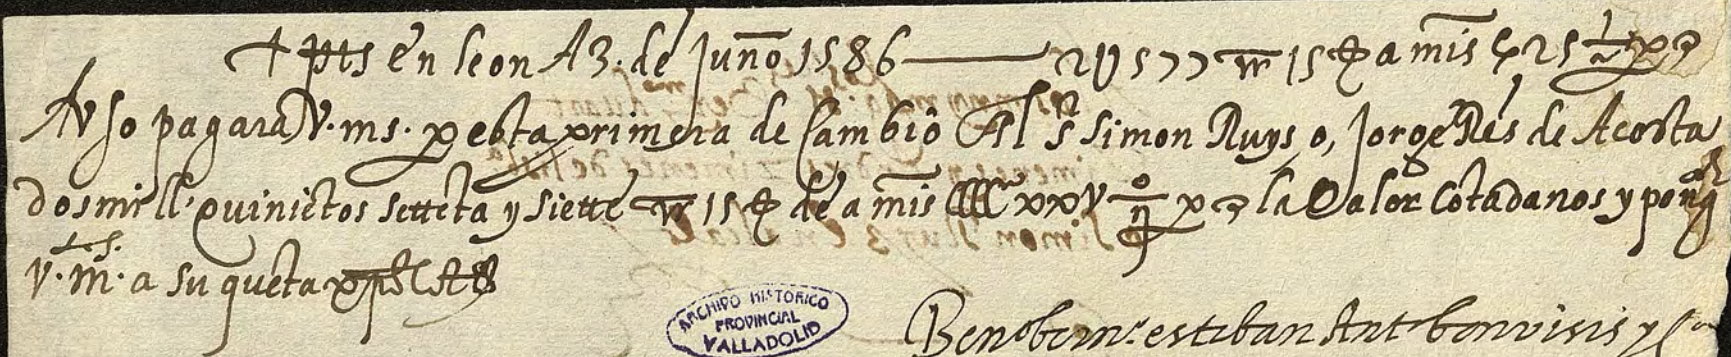 + Jhs en leon A 3. de Juño 1586 — 2U577 15 a mis 425 1/2 xpo
A uso pagara V. ms. por esta primera de cambio Al Sr Simon Ruys o, Jorge Res de Acosta
dos mill quinietos setteta y siette 15 de a mis CCCC xxv la Valor Cotada nos y
V. ms. a su queta xpo
ARCHIVO HISTORICO
PROVINCIAL
VALLADOLID
estiban Ant bonvisis y Ca